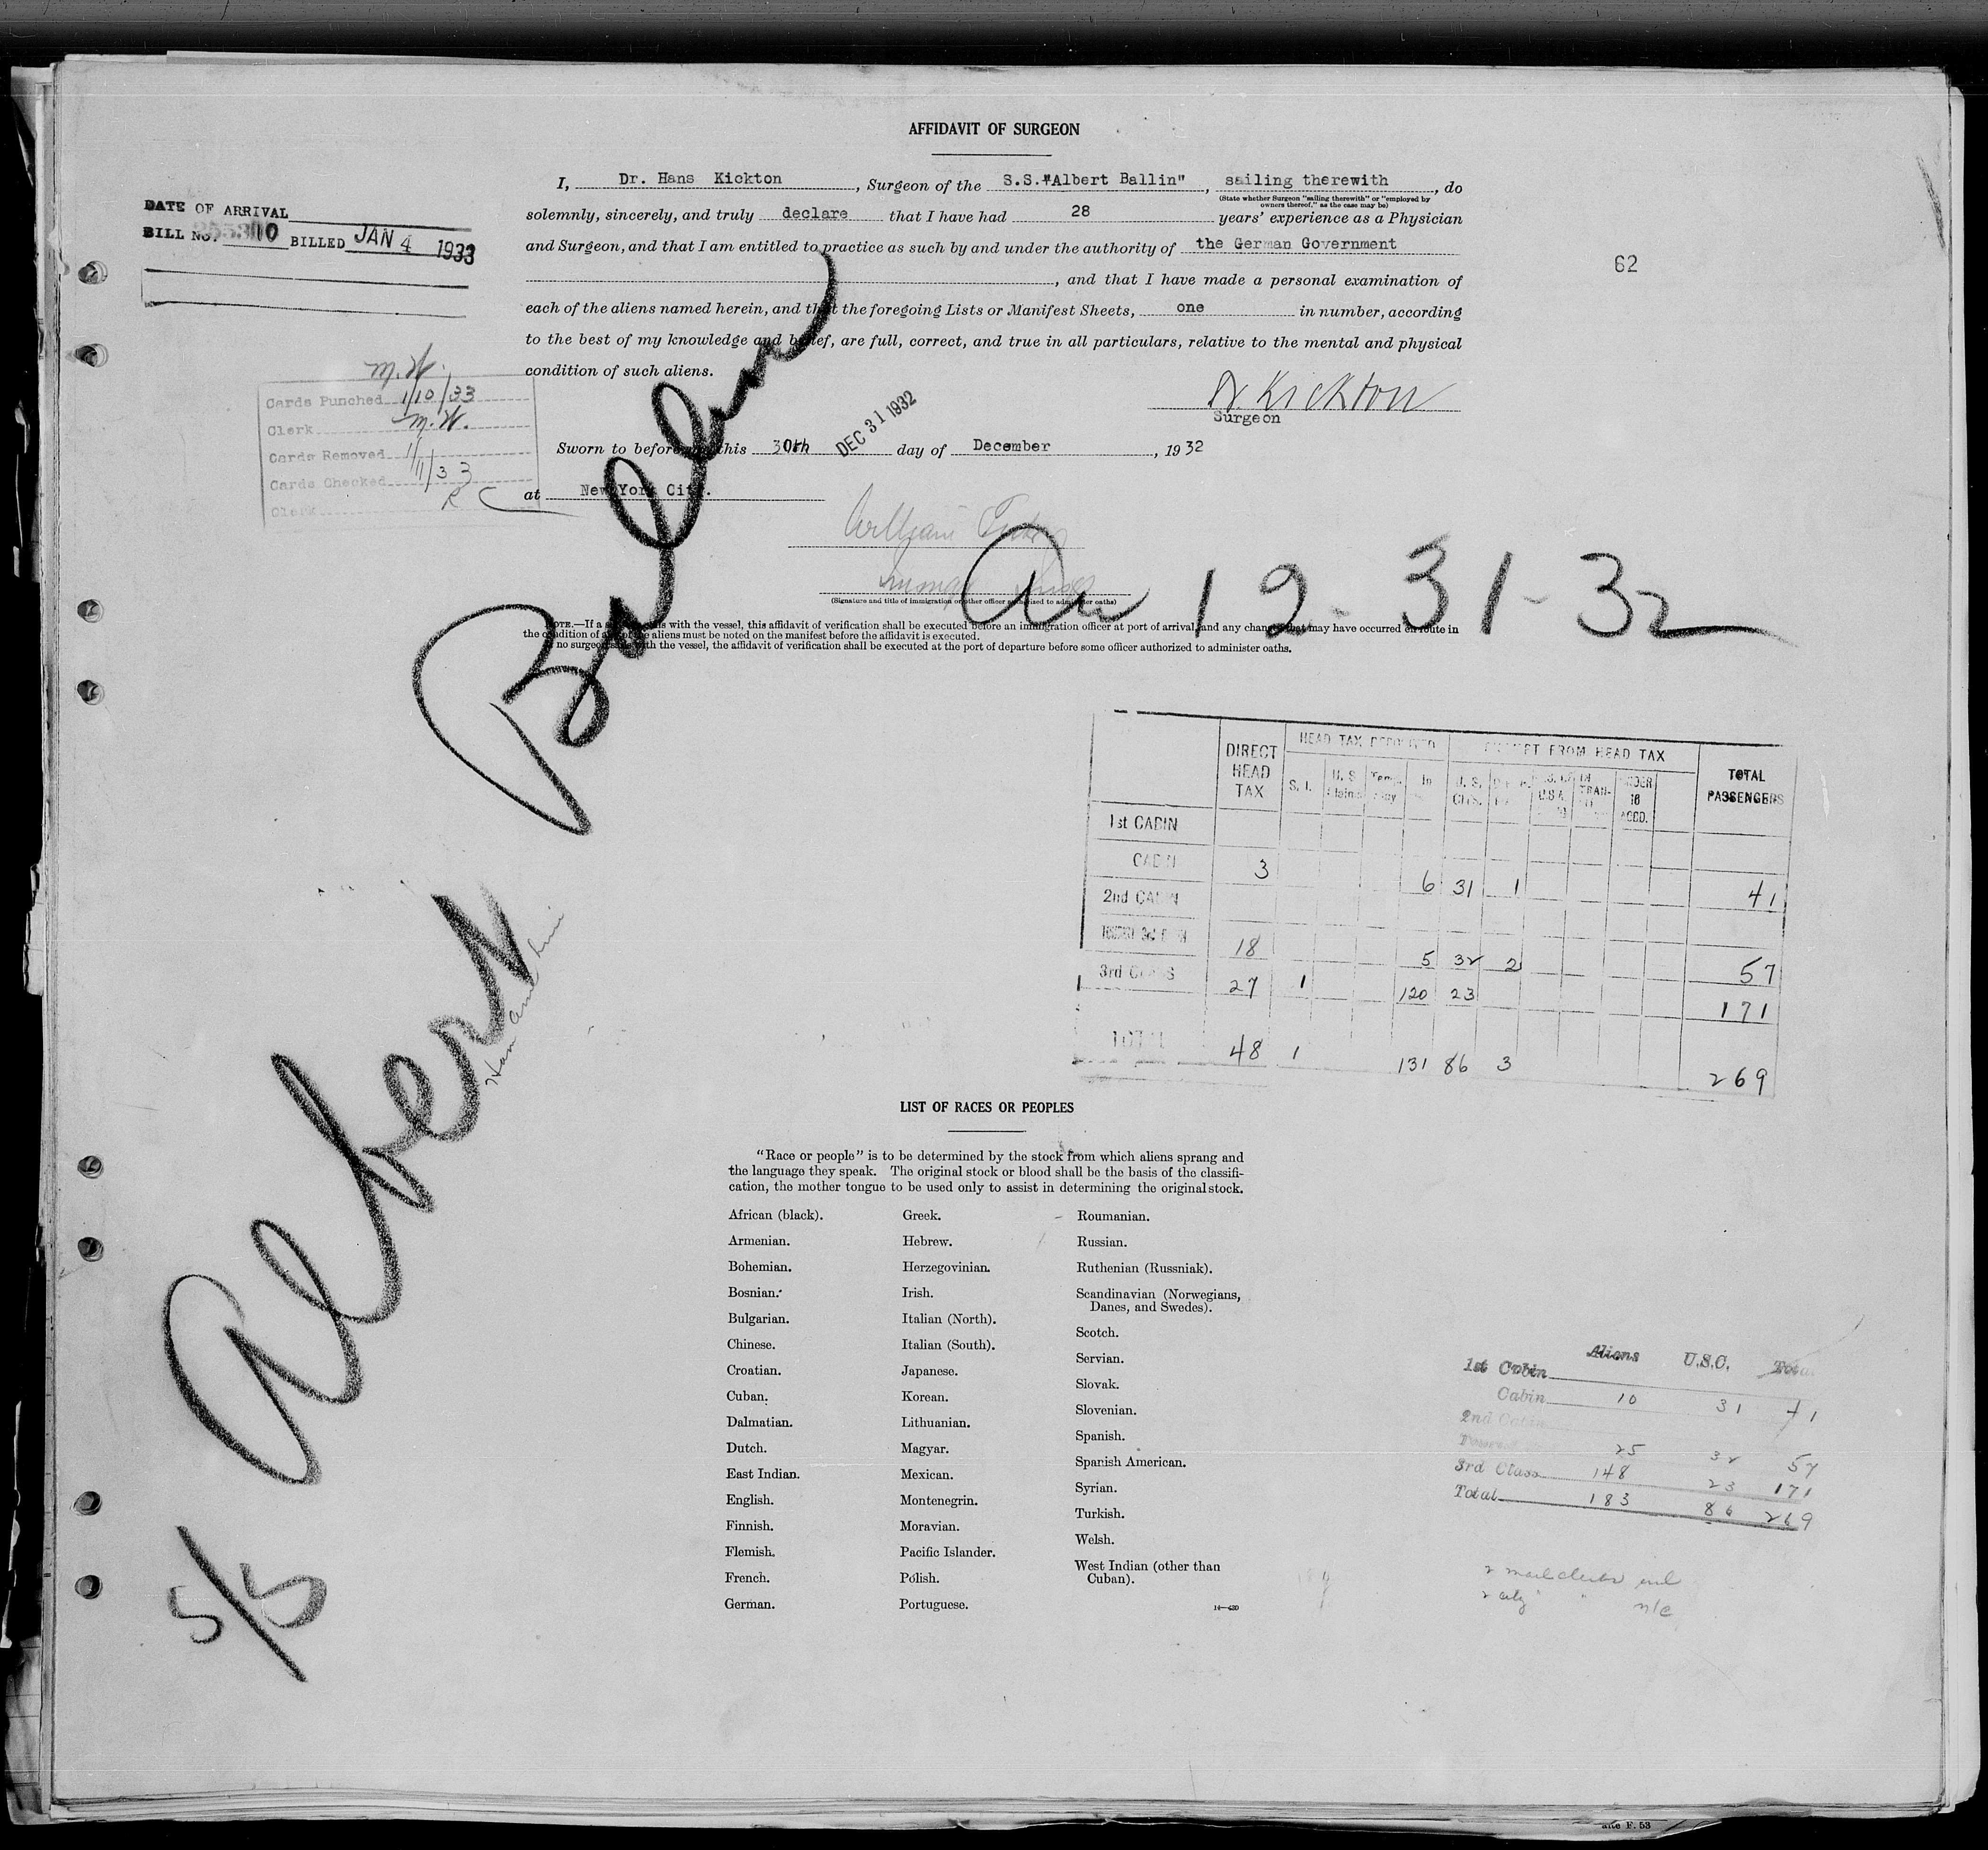 AFFIDAVIT OF SURGEON
I, Dr. Hans Kickton, Surgeon of the S.S."Albert Ballin", sailing therewith, do
(State whether Surgeon "sailing therewith" or "employed by
owners thereof," as the case may be)
solemnly, sincerely, and truly declare that I have had 28 years' experience as a Physician
and Surgeon, and that I am entitled to practice as such by and under the authority of the German Government
, and that I have made a personal examination of
each of the aliens named herein, and that the foregoing Lists or Manifest Sheets, one in number, according
to the best of my knowledge and belief, are full, correct, and true in all particulars, relative to the mental and physical
condition of such aliens.
Dr Kickton
Surgeon
DATE OF ARRIVAL
BILL NO. BILLED JAN 4 1933
62
M.W.
Cards Punched 1/10/33
Clerk M.W.
Cards Removed
Cards Checked 1/11/33
Clerk R C
Sworn to before me this 30th DEC 31 1932 day of December, 1932
at New York City.
William
(Signature and title of immigration or other officer authorized to administer oaths)
Arr 12-31-32
NOTE.—If a surgeon sails with the vessel, this affidavit of verification shall be executed before an immigration officer at port of arrival, and any changes that may have occurred en route in
the condition of any of the aliens must be noted on the manifest before the affidavit is executed.
If no surgeon sails with the vessel, the affidavit of verification shall be executed at the port of departure before some officer authorized to administer oaths.
Albert Ballin
5/5
DIRECT HEAD TAX HEAD TAX DEPOSITED EXEMPT FROM HEAD TAX TOTAL PASSENGERS
S. I. U. S. Claims In U. S. CITS. UNDER 16 ACCD.
1st CABIN
CABIN 3 6 31 1 41
2nd CABIN
18 5 32 2 57
3rd CLASS 27 1 120 23 171
TOTAL 48 1 131 86 3 269
LIST OF RACES OR PEOPLES
"Race or people" is to be determined by the stock from which aliens sprang and
the language they speak. The original stock or blood shall be the basis of the classifi-
cation, the mother tongue to be used only to assist in determining the original stock.
African (black).
Armenian.
Bohemian.
Bosnian.
Bulgarian.
Chinese.
Croatian.
Cuban.
Dalmatian.
Dutch.
East Indian.
English.
Finnish.
Flemish.
French.
German.
Greek.
Hebrew.
Herzegovinian.
Irish.
Italian (North).
Italian (South).
Japanese.
Korean.
Lithuanian.
Magyar.
Mexican.
Montenegrin.
Moravian.
Pacific Islander.
Polish.
Portuguese.
Roumanian.
Russian.
Ruthenian (Russniak).
Scandinavian (Norwegians,
Danes, and Swedes).
Scotch.
Servian.
Slovak.
Slovenian.
Spanish.
Spanish American.
Syrian.
Turkish.
Welsh.
West Indian (other than
Cuban).
Aliens U.S.C. Total
1st Cabin
Cabin 10 31 41
2nd Cabin
25 32 57
3rd Class 148 23 171
Total 183 86 269
2 mail clerks